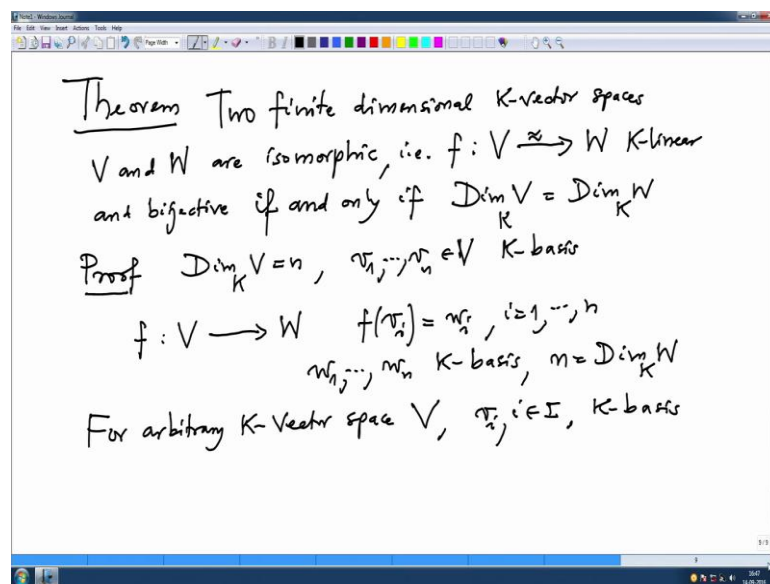 Note1 - Windows Journal
File Edit View Insert Actions Tools Help
Page Width
Theorem Two finite dimensional K-vector spaces
V and W are isomorphic, i.e. f : V ⥲ W K-linear
and bijective if and only if Dim_K V = Dim_K W
Proof Dim_K V = n, v_1, ..., v_n ∈ V K-basis
f : V ⟶ W f(v_i) = w_i, i=1, ..., n
w_1, ..., w_n K-basis, n = Dim_K W
For arbitrary K-Vector space V, v_i, i ∈ I, K-basis
9/9
9
16:47